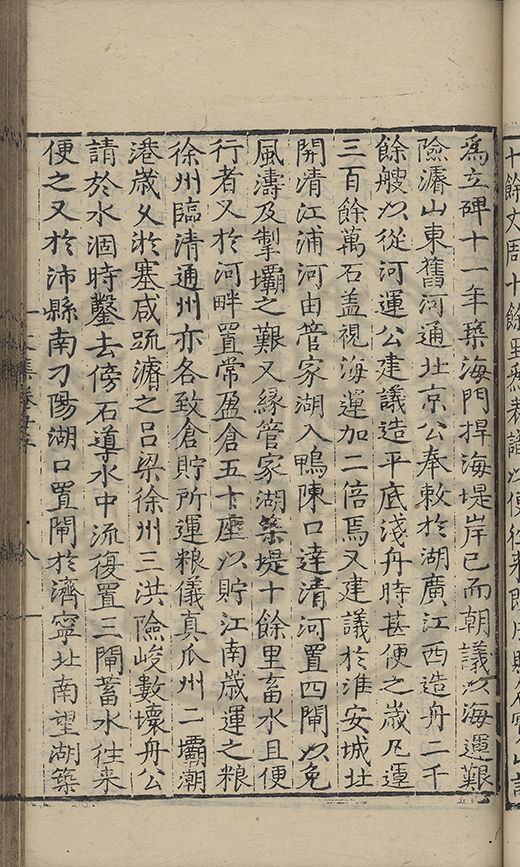 十餘丈周十餘里
爲立碑十一年築海門捍海堤岸已而朝議以海運艱
險濬山東舊河通北京公奉敕於湖廣江西造舟二千
餘艘以從河運公建議造平底淺舟時甚便之歲凡運
三百餘萬石盖視海運加二倍焉又建議於淮安城北
開清江浦河由管家湖入鴨陳口達清河置四閘以免
風濤及掣壩之艱又緣管家湖築堤十餘里畜水且便
行者又於河畔置常盈倉五十座以貯江南歲運之粮
徐州臨清通州亦各致倉貯所運粮儀真瓜州二壩潮
港歲久淤塞咸疏濬之吕梁徐州三洪險峻數壞舟公
請於水涸時鑿去傍石導水中流復置三閘蓄水往来
便之又於沛縣南刁陽湖口置閘於濟寧北南望湖築